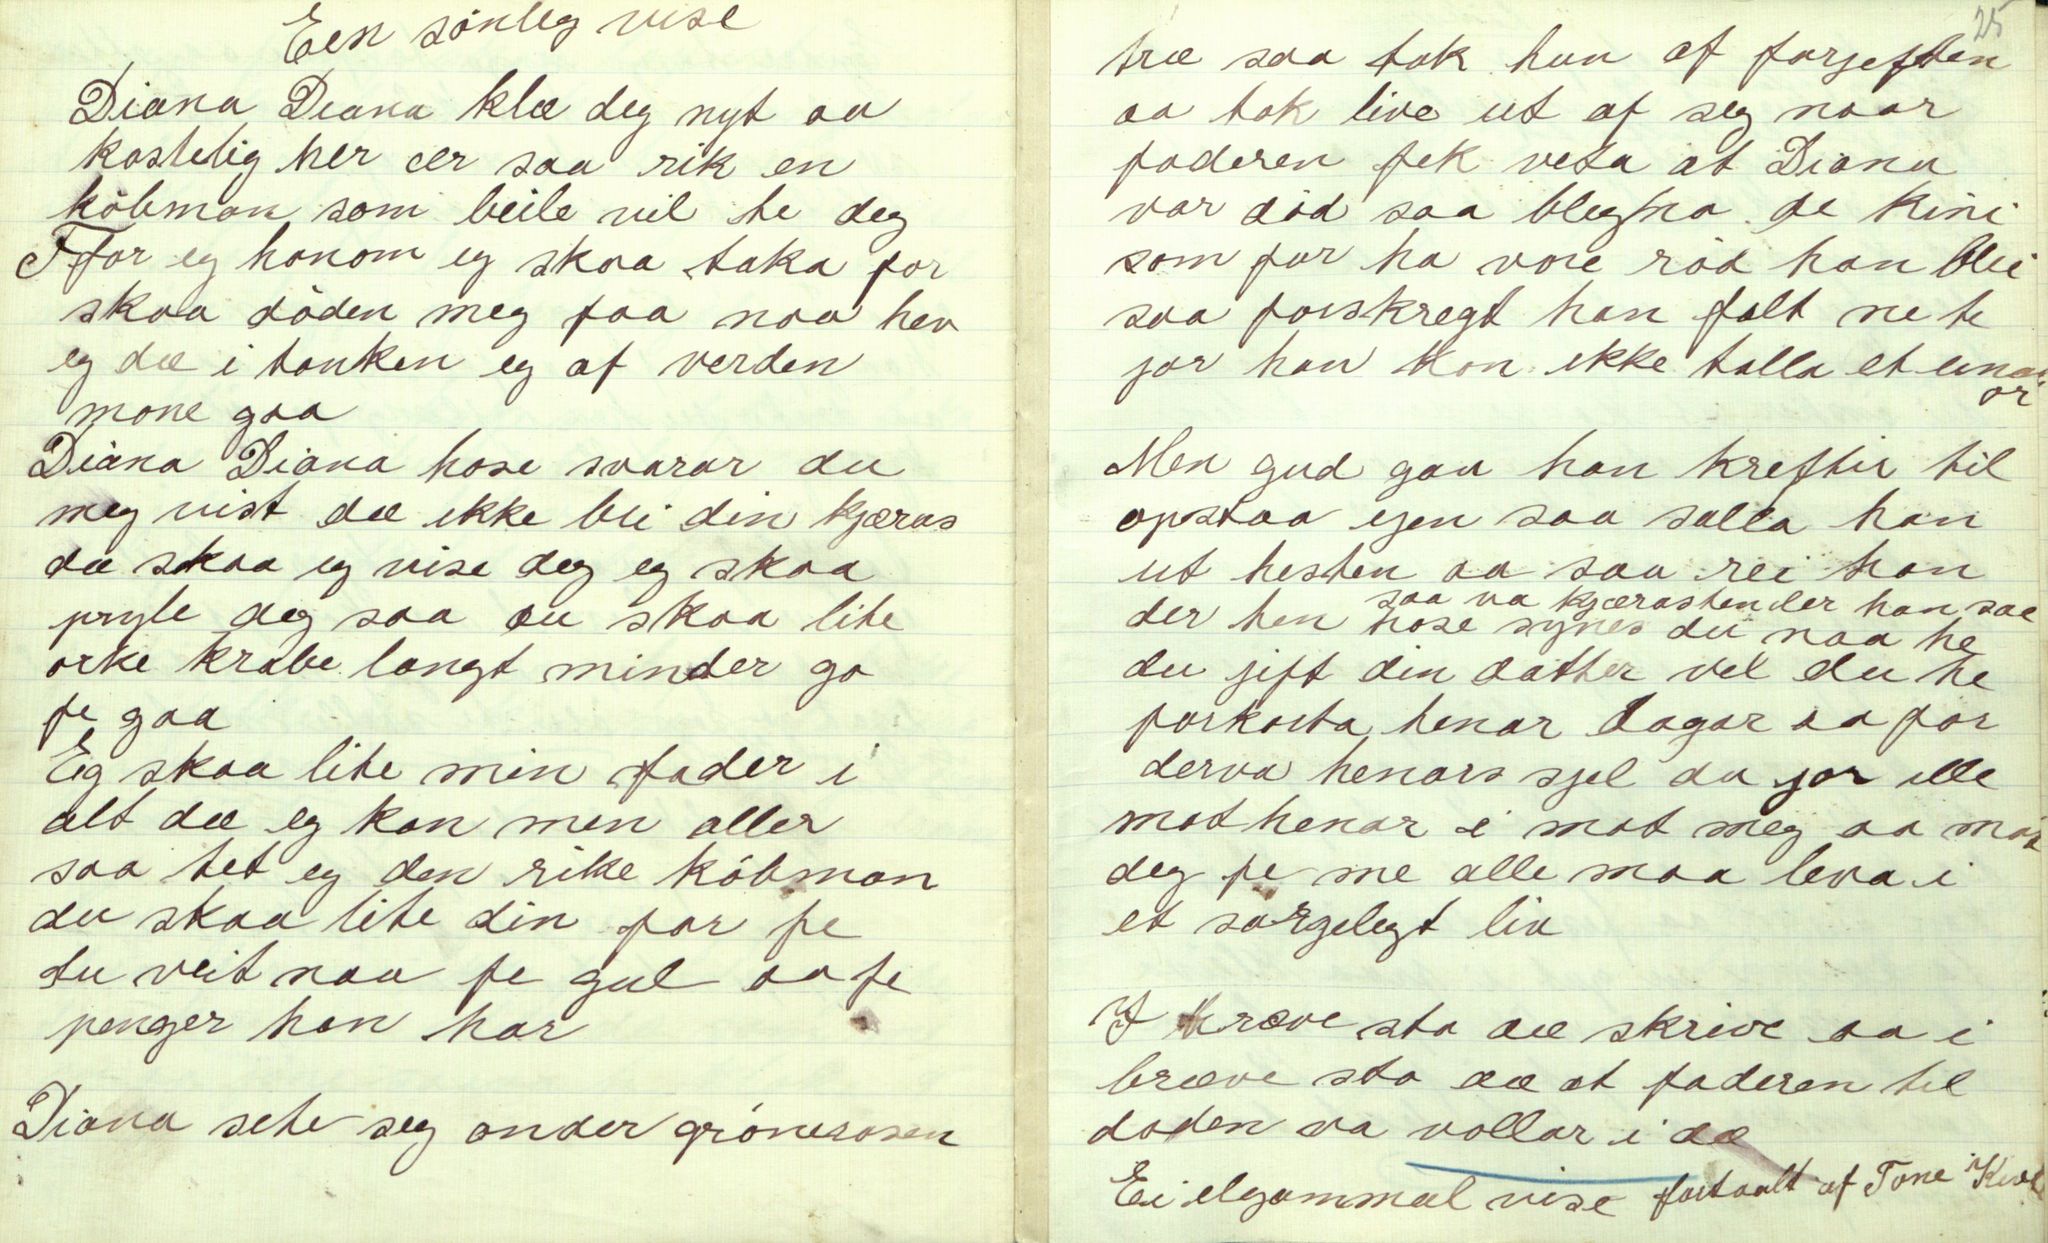 Een sönleg vise
Diana Diana klæ deg nyt aa
kostelig her ær saa rik en
köbman som beile vil te deg
For eg honom eg skaa taka for
skaa döden meg faa naa hev
eg dæ i tanken eg af verden
mone gaa
Diana Diana hose svarar du
meg vist dæ ikke bli din kjæras
dæ skaa eg vise deg eg skaa
pryle deg saa du skaa lite
orke krabe langt minder go
fe gaa
Eg skaa lite min fader i
alt dæ eg kan men aller
saa tet eg den rike köbman
du skaa lite din far fe
du veit naa fe gul aa fe
penger han har
Diana sete seg onder grönerosen
25
træ saa tok hun af forjeften
aa tok live ut af seg naar
faderen fek veta at Diana
var död saa blegna de kini
som för ha vore röd han blei
saa forskregt han falt ne te
jor han kon ikke talla et enaste
or
Men gud gav han krefter til
opstaa ejen saa salla han
ut hesten aa saa rei han
der hen saa va kjærasten der han sae
hose synes du naa he
du jift din datter vel du he
forkorta henar dagar aa for
derva henars sjel du jor ille
mot henar i mot meg aa mot
deg fe me alle maa leva i
et sorgelegt liv
I bræve sto dæ skrive aa i
bræve sto dæ at faderen til
doden va vollar i dæ
Ei elgammal vise fortaalt af Tone